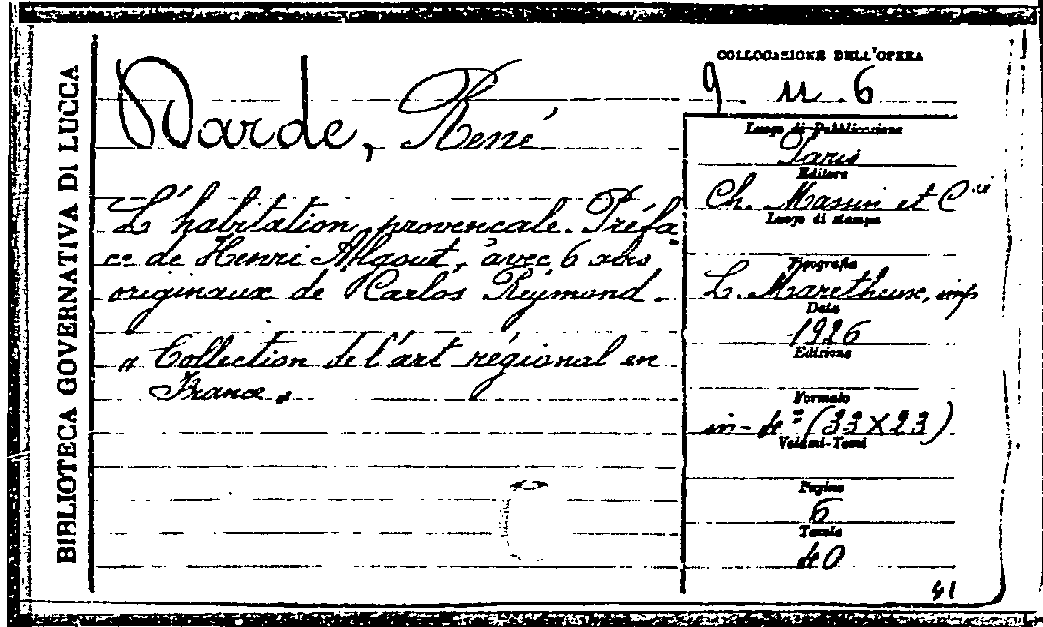 BIBLIOTECA GOVERNATIVA DI LUCCA
Darde, René
L'habitation provencale. Préfa-
ce de Henri Algout, avec 6 bois
originaux de Carlos Reymond.
« Collection de l'art régional en
France.»
COLLOCAZIONE DELL'OPERA
9. u. 6
Luogo di Pubblicazione
Paris
Editore
Ch. Massin et Cie
Luogo di stampa
Tipografia
L. Maretheux, imp
Data
1926
Edizione
Formato
in-4° (33X23)
Volumi-Tomi
Pagine
6
Tavole
40